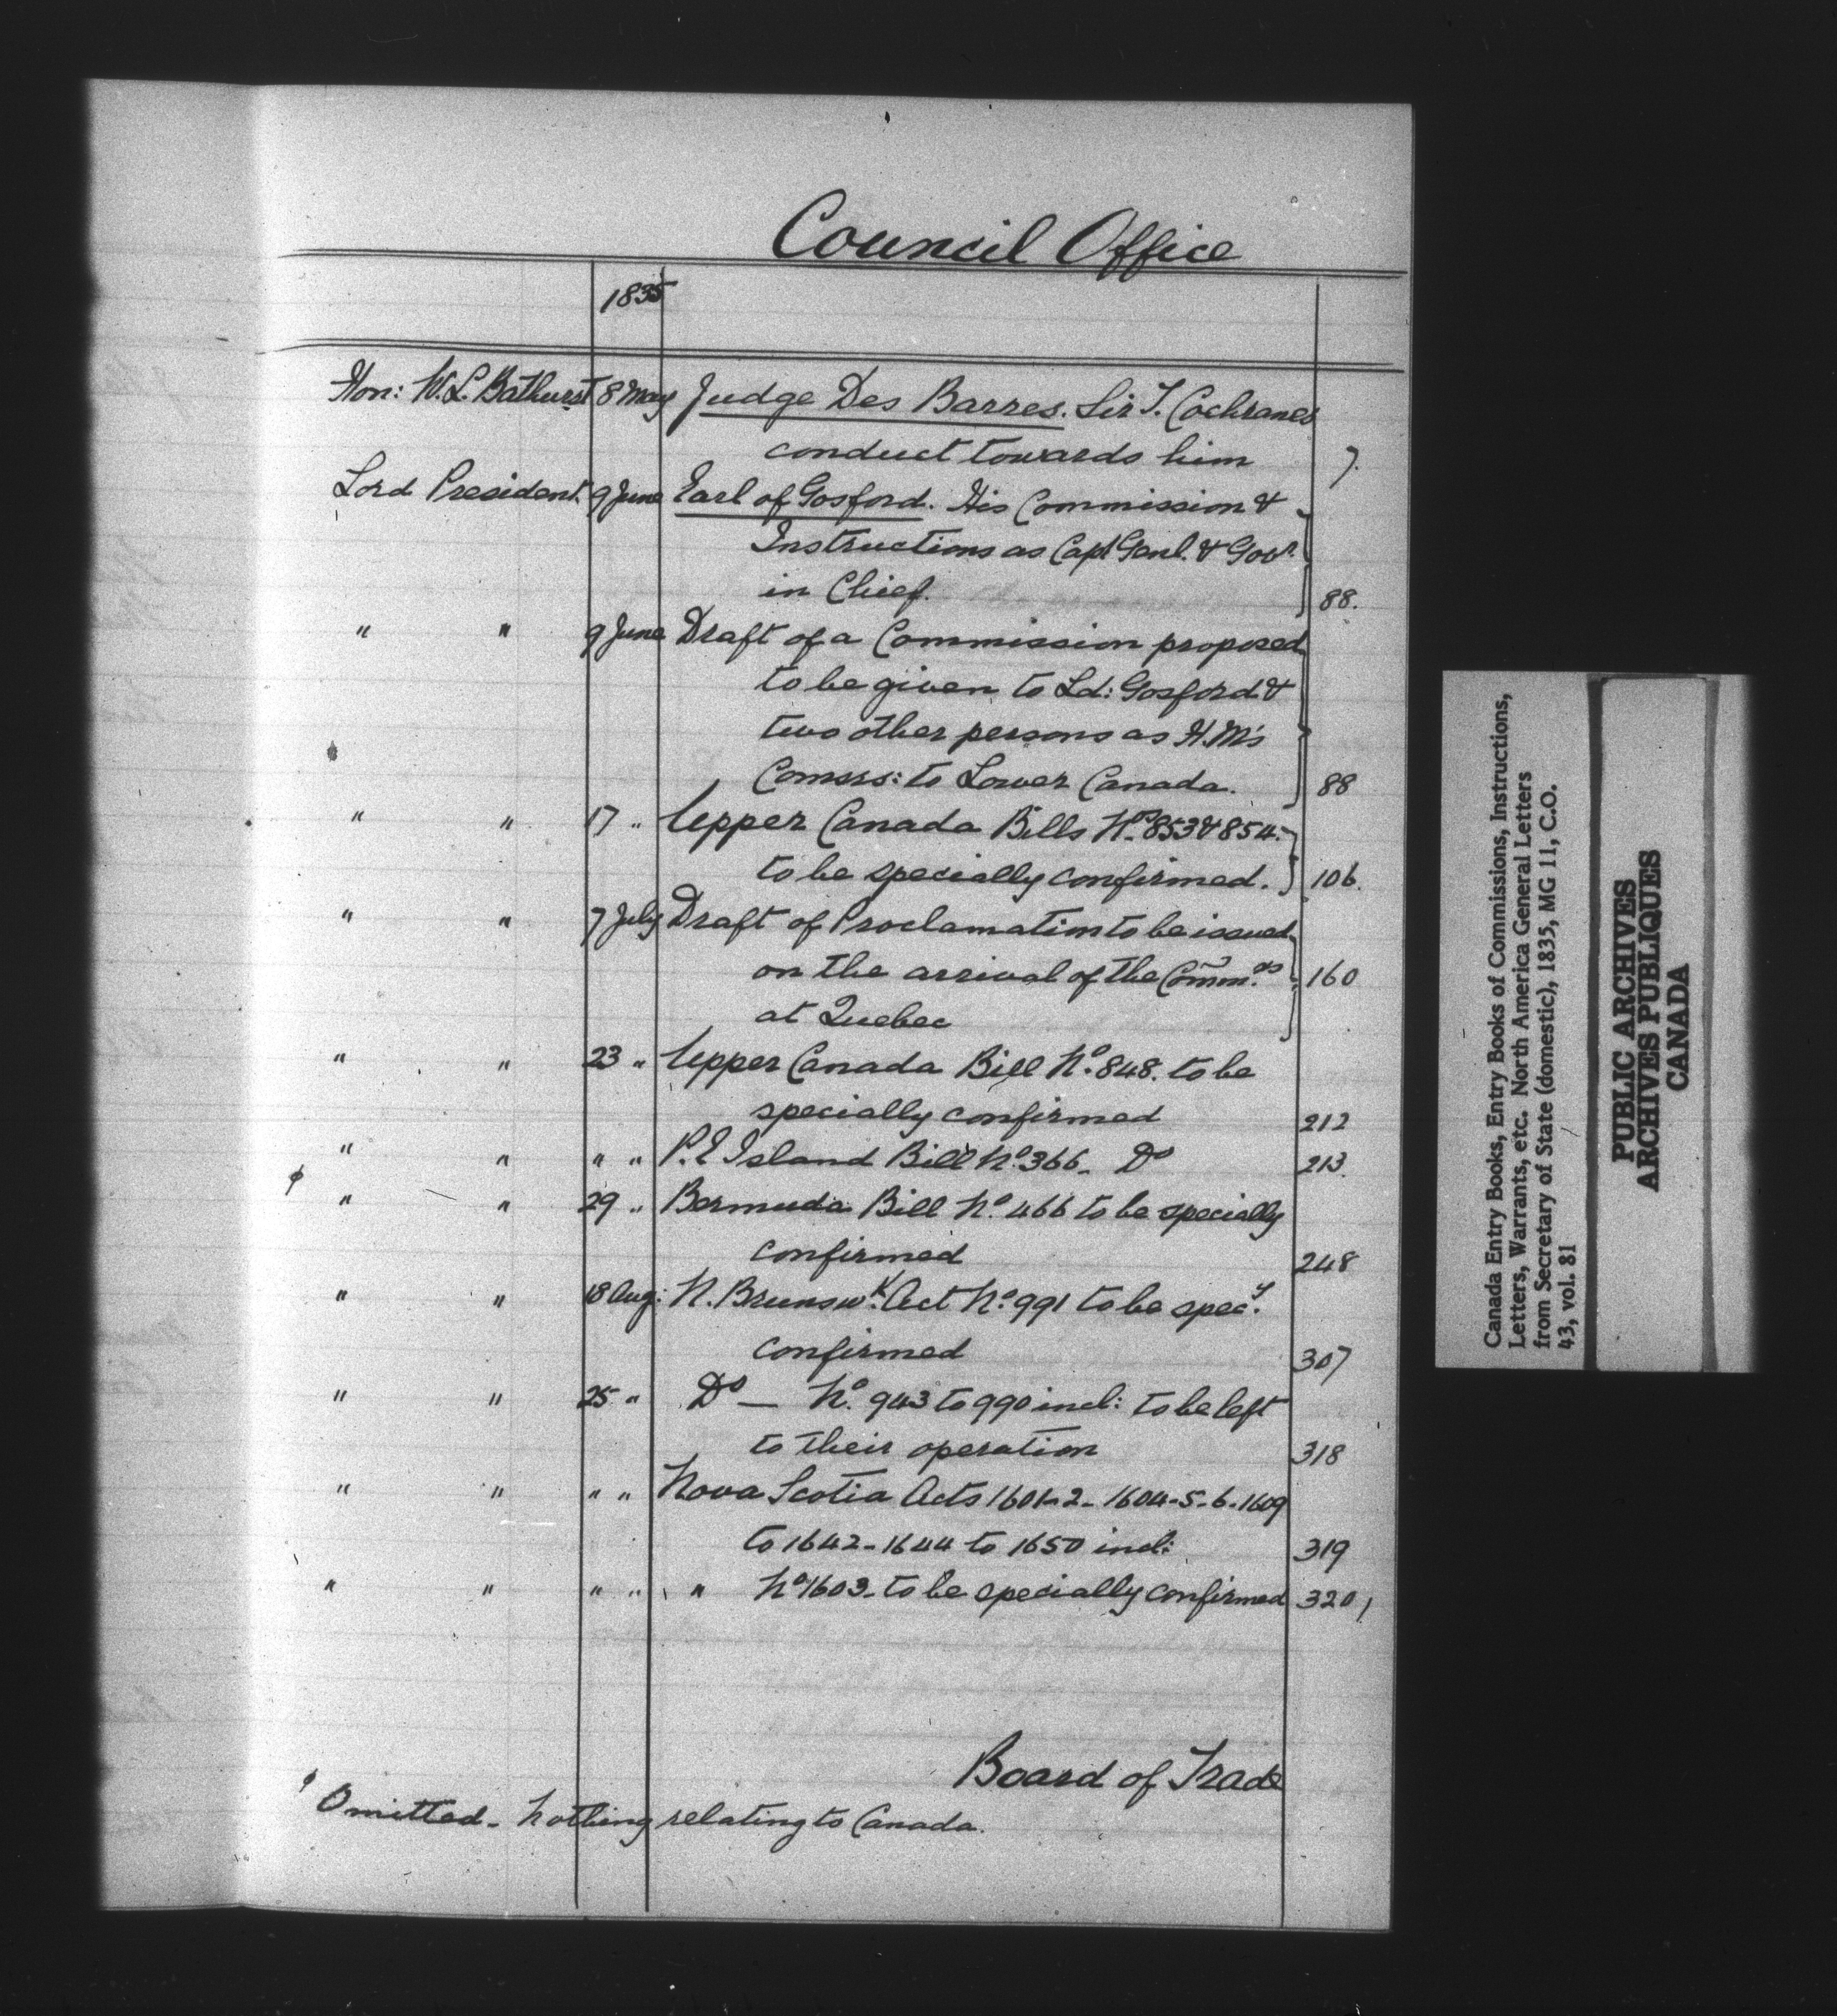 Council Office
1835
Hon: W. L. Bathurst 8 May Judge Des Barres. Sir T. Cochranes
conduct towards him 7.
Lord President. 9 June Earl of Gosford. His Commission &
Instructions as Capt Genl. & Govr.
in Chief. 88.
" " 9 June Draft of a Commission proposed
to be given to Ld: Gosford &
two other persons as H.M's
Comsrs: to Lower Canada. 88
" " 17 " Upper Canada Bills Nos. 853 & 854.
to be specially confirmed. 106.
" " 7 July Draft of Proclamation to be issued
on the arrival of the Comm.rs 160
at Quebec
" " 23 " Upper Canada Bill No. 848. to be
specially confirmed 212
" " " " P. E Island Bill No. 366 - Do 213.
ϕ " " 29 " Bermuda Bill No. 466 to be specially
confirmed 248
" " 18 Aug: N. Brunswk. Act No. 991 to be specy.
confirmed 307
" " 25 " Do — No. 943 to 990 incl: to be left
to their operation 318
" " " " Nova Scotia Acts 1601-2-1604-5-6-1609
to 1642-1644 to 1650 incl: 319
" " " " " No 1603- to be specially confirmed 320
Board of Trade
ϕ Omitted - Nothing relating to Canada.
Canada Entry Books, Entry Books of Commissions, Instructions,
Letters, Warrants, etc. North America General Letters
from Secretary of State (domestic), 1835, MG 11, C.O.
43, vol. 81
PUBLIC ARCHIVES
ARCHIVES PUBLIQUES
CANADA